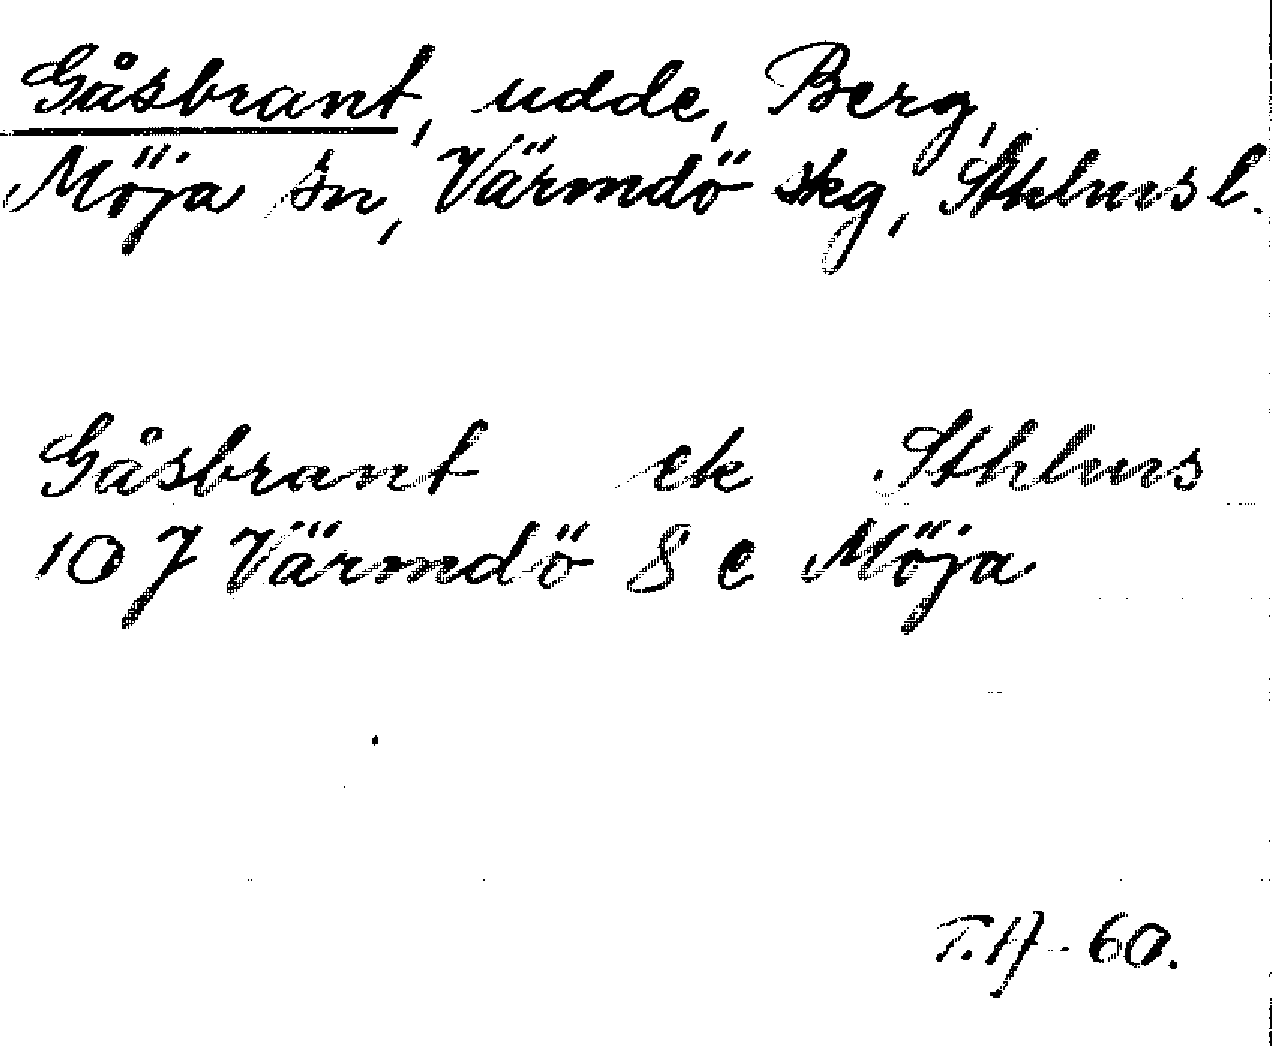 Gåsbrant, udde, Berg,
Möja sn, Värmdö skg, Sthlms l.
Gåsbrant ek Sthlms
10 J Värmdö 8 e Möja
T.H-60.